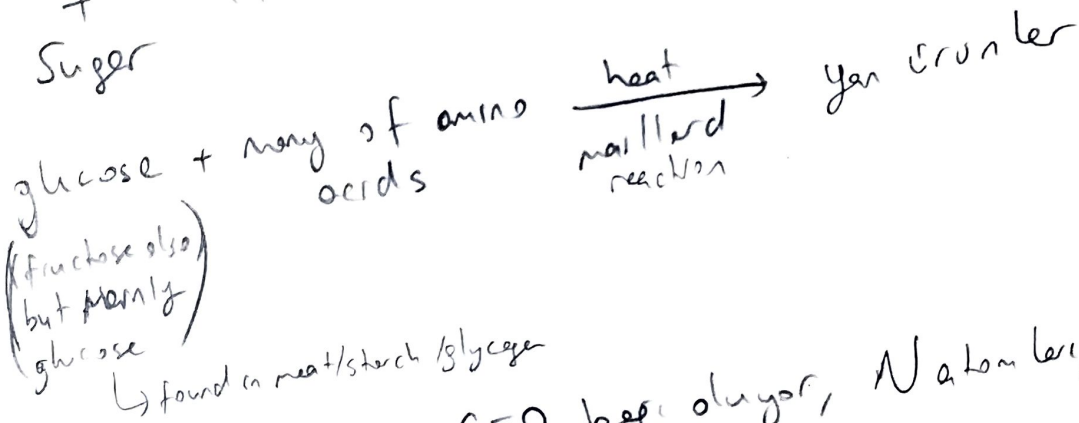 +
Suger
glucose + many of amino acids
heat
maillard reaction
yan ürünler
(fructose also
but mainly
glucose)
↳ found in meat/starch/glycogen
C=O bağı oluyor, N atomları